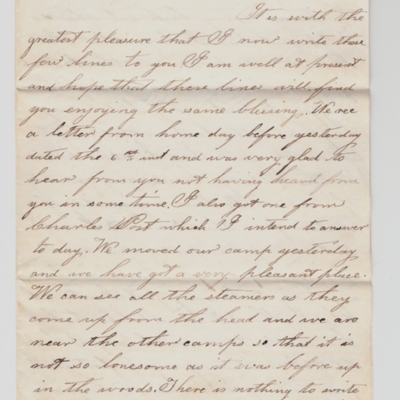 It is with the
greatest pleasure that I now write these
few lines to you I am well at present
and hope that these lines will find
you enjoying the same blissing. We rec
a letter from home day before yesterday
dated the 6th inst and was very glad to
hear from you not having heard from
you in some time. I also got one from
Charles Post which I intend to answer
to day. We moved our camp yesterday
and we have got a very pleasant place.
We can see all the steamers as they
come up from the head and we are
near the other camps so that it is
not so lonesome as it was before up
in the woods. There is nothing to write